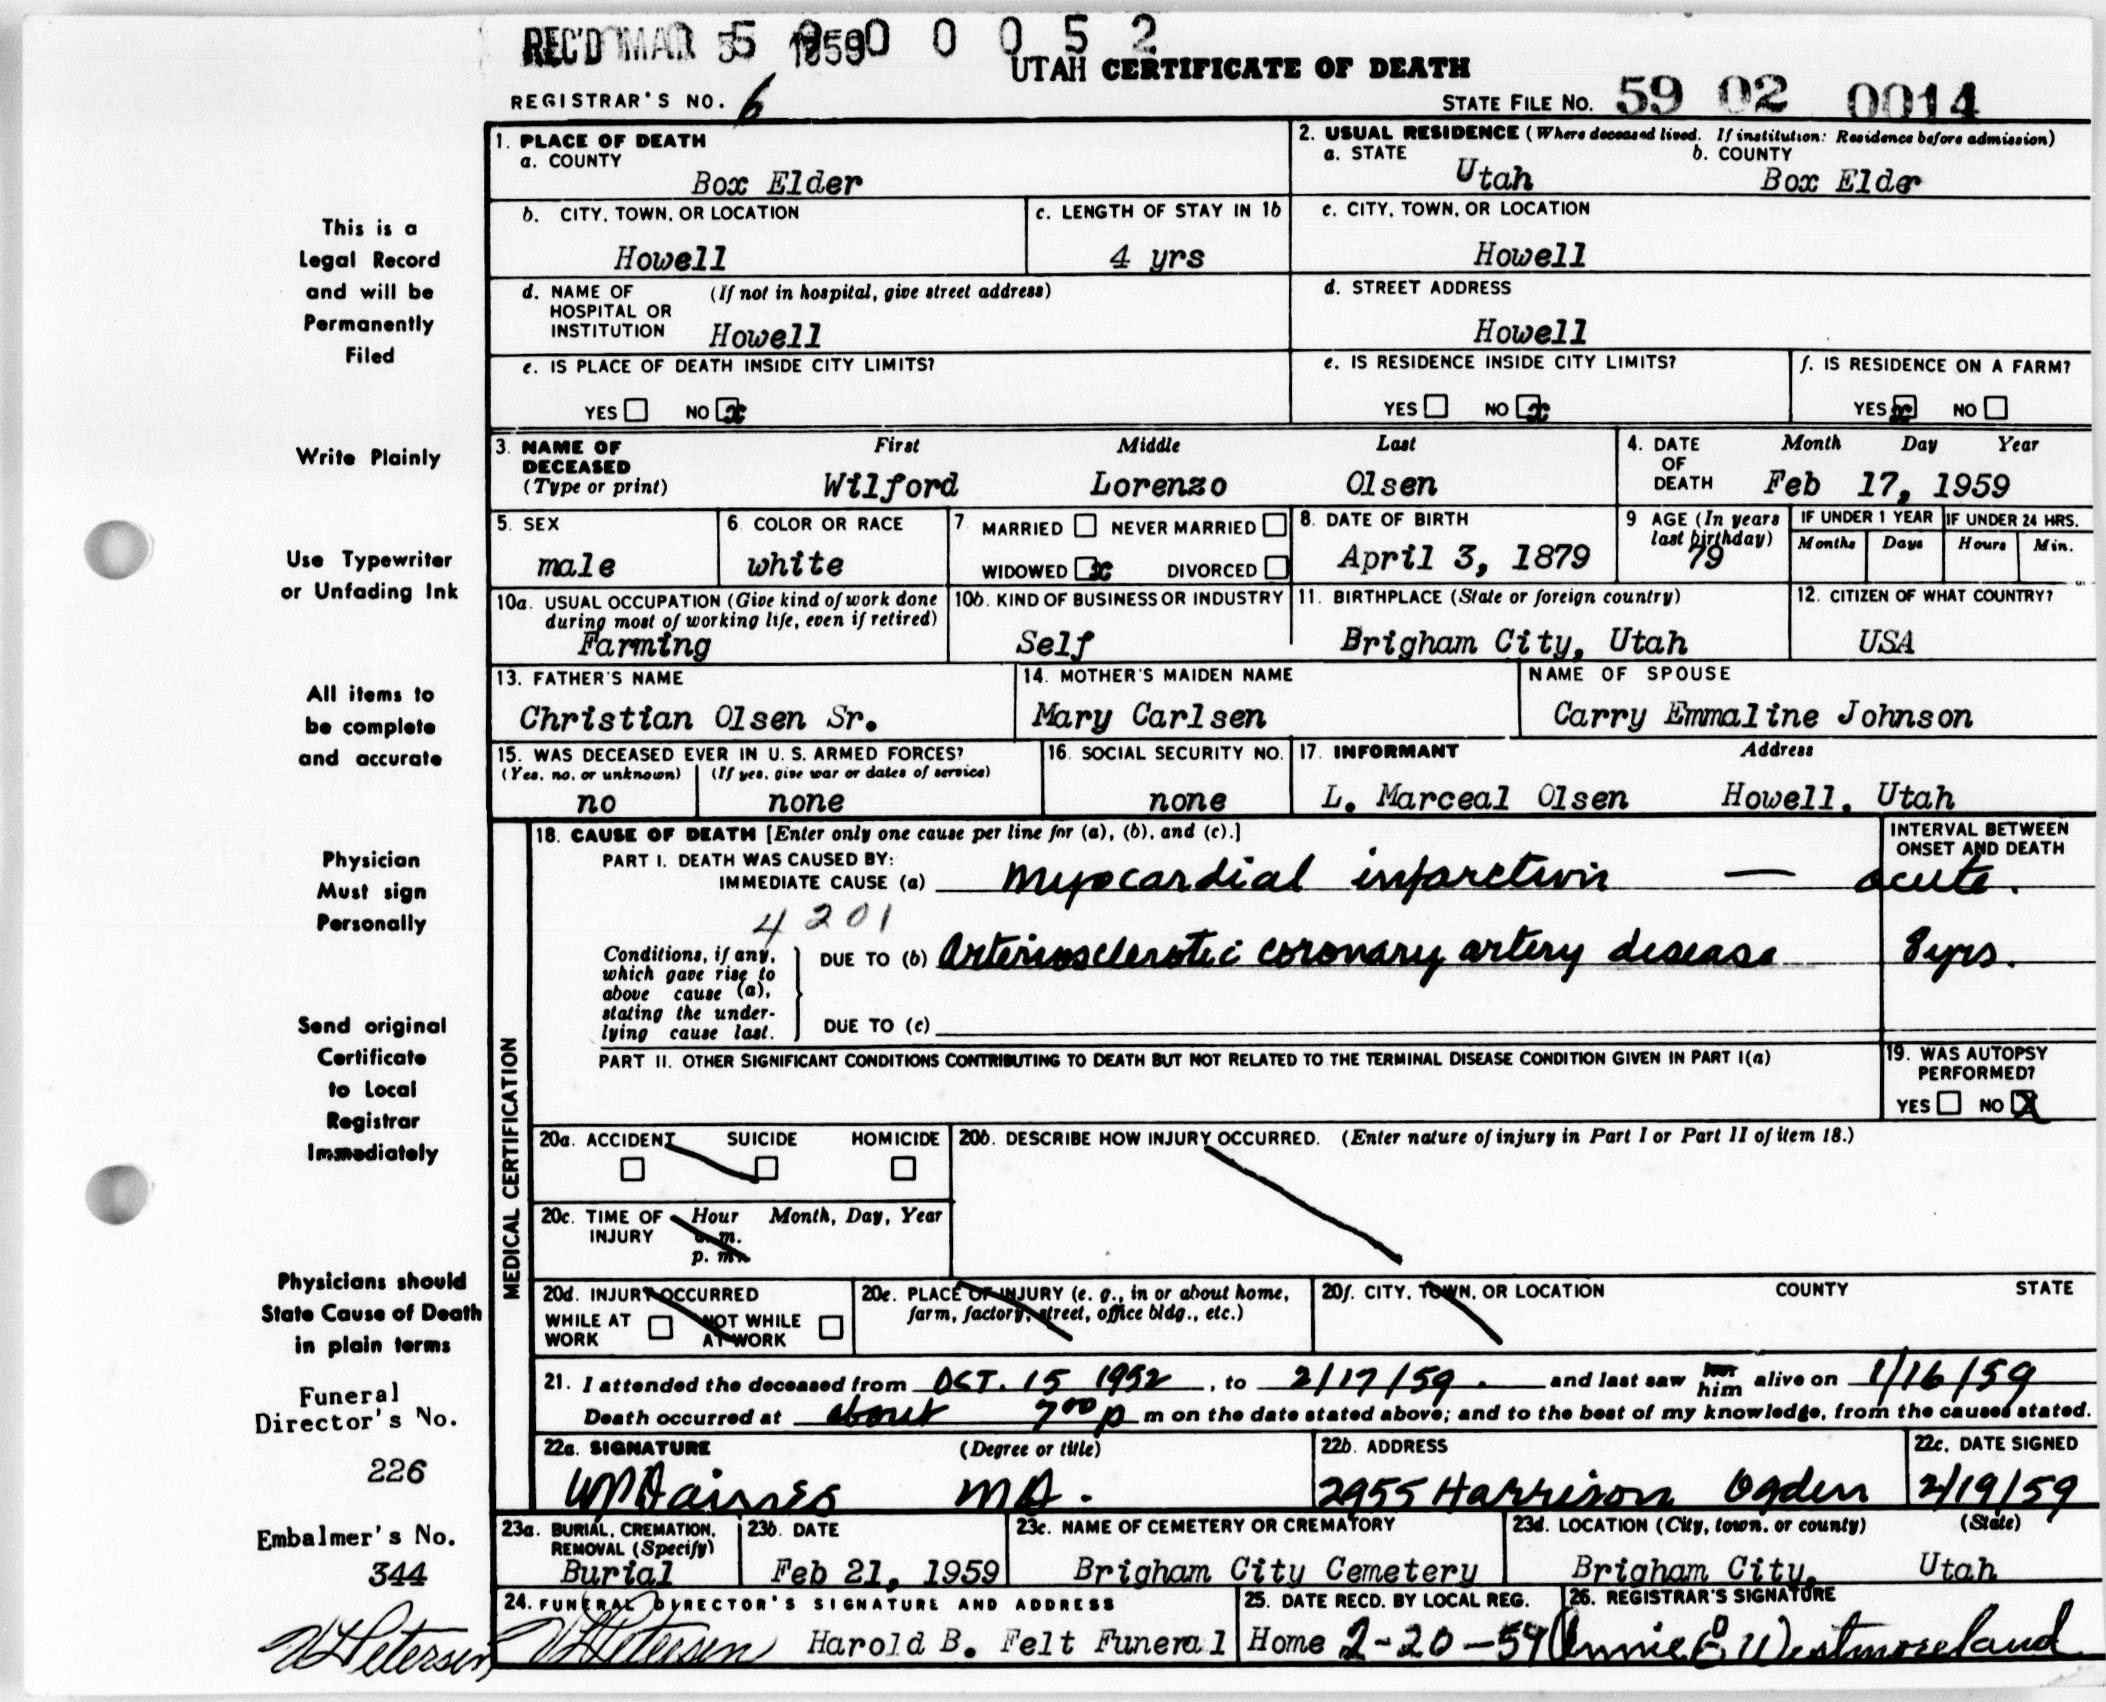 REC'D MAR 5 1959 0 0 0 5 2
UTAH CERTIFICATE OF DEATH
REGISTRAR'S NO. 6
STATE FILE NO. 59 02 0014
1. PLACE OF DEATH
a. COUNTY
Box Elder
2. USUAL RESIDENCE (Where deceased lived. If institution: Residence before admission)
a. STATE b. COUNTY
Utah Box Elder
b. CITY, TOWN, OR LOCATION
Howell
c. LENGTH OF STAY IN 1b
4 yrs
c. CITY, TOWN, OR LOCATION
Howell
d. NAME OF (If not in hospital, give street address)
HOSPITAL OR
INSTITUTION Howell
d. STREET ADDRESS
Howell
e. IS PLACE OF DEATH INSIDE CITY LIMITS?
YES NO x
e. IS RESIDENCE INSIDE CITY LIMITS?
YES NO x
f. IS RESIDENCE ON A FARM?
YES x NO
3. NAME OF First Middle Last
DECEASED
(Type or print) Wilford Lorenzo Olsen
4. DATE Month Day Year
OF
DEATH Feb 17, 1959
5. SEX
male
6. COLOR OR RACE
white
7. MARRIED NEVER MARRIED
WIDOWED x DIVORCED
8. DATE OF BIRTH
April 3, 1879
9 AGE (In years
last birthday)
79
IF UNDER 1 YEAR IF UNDER 24 HRS.
Months Days Hours Min.
10a. USUAL OCCUPATION (Give kind of work done
during most of working life, even if retired)
Farming
10b. KIND OF BUSINESS OR INDUSTRY
Self
11. BIRTHPLACE (State or foreign country)
Brigham City, Utah
12. CITIZEN OF WHAT COUNTRY?
USA
13. FATHER'S NAME
Christian Olsen Sr.
14. MOTHER'S MAIDEN NAME
Mary Carlsen
NAME OF SPOUSE
Carry Emmaline Johnson
15. WAS DECEASED EVER IN U. S. ARMED FORCES?
(Yes, no, or unknown) (If yes, give war or dates of service)
no none
16. SOCIAL SECURITY NO.
none
17. INFORMANT Address
L. Marceal Olsen Howell, Utah
MEDICAL CERTIFICATION
18. CAUSE OF DEATH [Enter only one cause per line for (a), (b), and (c).]
INTERVAL BETWEEN
ONSET AND DEATH
PART I. DEATH WAS CAUSED BY:
IMMEDIATE CAUSE (a) Myocardial infarction — acute.
4201
Conditions, if any,
which gave rise to
above cause (a),
stating the under-
lying cause last.
DUE TO (b) Arteriosclerotic coronary artery disease 8 yrs.
DUE TO (c)
PART II. OTHER SIGNIFICANT CONDITIONS CONTRIBUTING TO DEATH BUT NOT RELATED TO THE TERMINAL DISEASE CONDITION GIVEN IN PART I(a)
19. WAS AUTOPSY
PERFORMED?
YES NO X
20a. ACCIDENT SUICIDE HOMICIDE
20b. DESCRIBE HOW INJURY OCCURRED. (Enter nature of injury in Part I or Part II of item 18.)
20c. TIME OF Hour Month, Day, Year
INJURY a. m.
p. m.
20d. INJURY OCCURRED
WHILE AT NOT WHILE
WORK AT WORK
20e. PLACE OF INJURY (e. g., in or about home,
farm, factory, street, office bldg., etc.)
20f. CITY, TOWN, OR LOCATION COUNTY STATE
21. I attended the deceased from OCT. 15 1952, to 2/17/59. and last saw her him alive on 1/16/59
Death occurred at about 7 00 p m on the date stated above; and to the best of my knowledge, from the causes stated.
22a. SIGNATURE (Degree or title)
WP Daines MD.
22b. ADDRESS
2955 Harrison Ogden
22c. DATE SIGNED
2/19/59
23a. BURIAL, CREMATION,
REMOVAL (Specify)
Burial
23b. DATE
Feb 21, 1959
23c. NAME OF CEMETERY OR CREMATORY
Brigham City Cemetery
23d. LOCATION (City, town, or county) (State)
Brigham City, Utah
24. FUNERAL DIRECTOR'S SIGNATURE AND ADDRESS
Petersen Harold B. Felt Funeral Home
25. DATE RECD. BY LOCAL REG.
2-20-59
26. REGISTRAR'S SIGNATURE
Annie B Westmoreland
This is a
Legal Record
and will be
Permanently
Filed
Write Plainly
Use Typewriter
or Unfading Ink
All items to
be complete
and accurate
Physician
Must sign
Personally
Send original
Certificate
to Local
Registrar
Immediately
Physicians should
State Cause of Death
in plain terms
Funeral
Director's No.
226
Embalmer's No.
344
Petersen